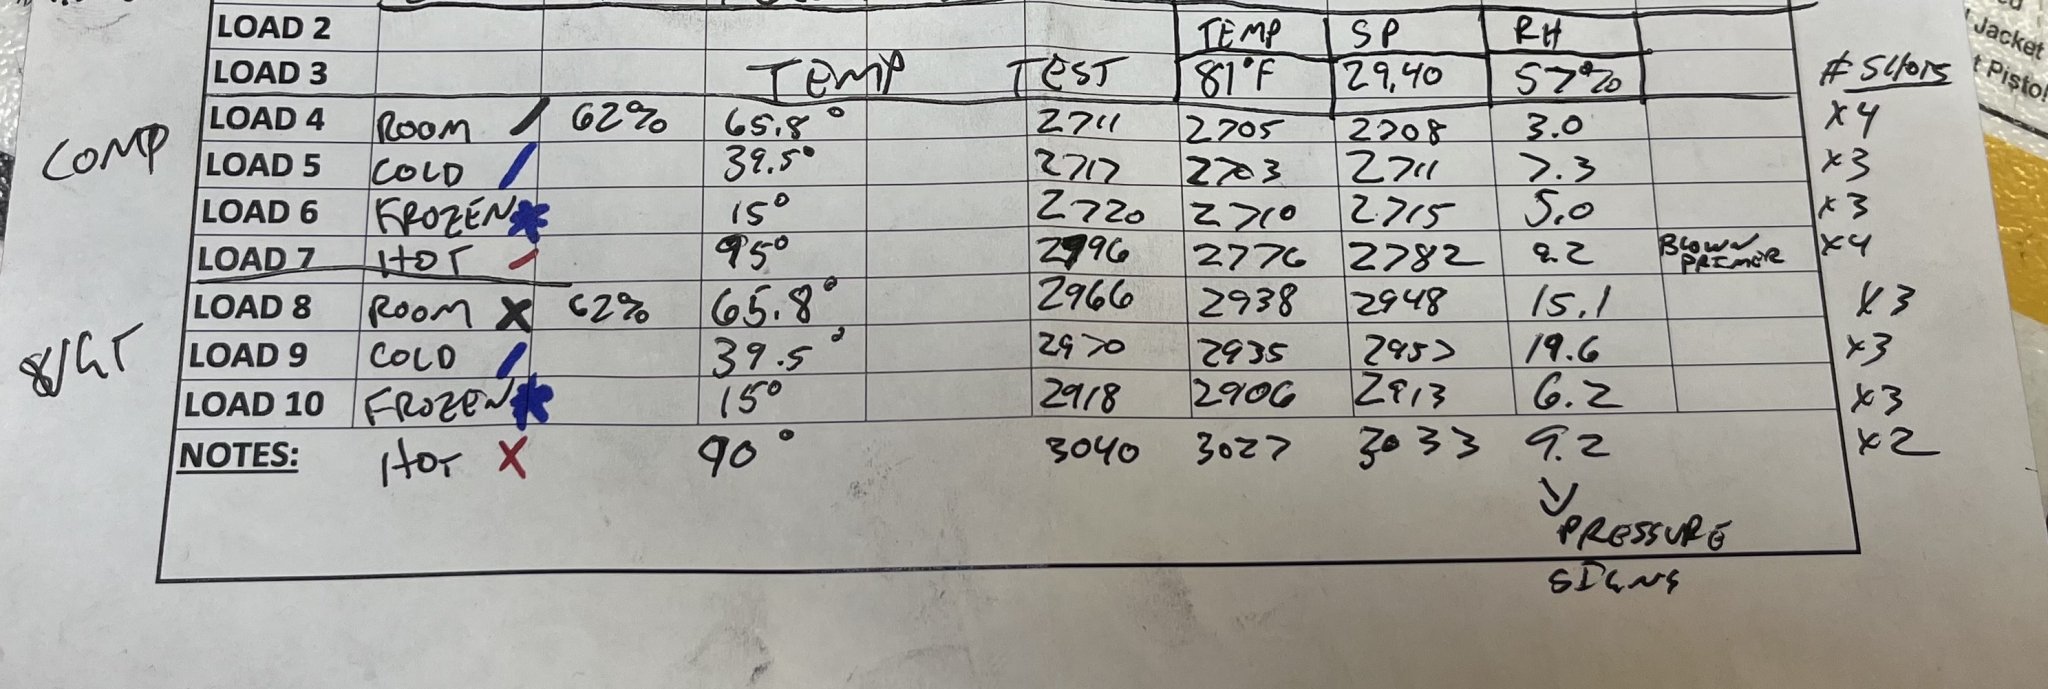 LOAD 2 TEMP SP RH
LOAD 3 TEMP TEST 81°F 29.40 57% # SHOTS
COMP
LOAD 4 ROOM 62% 65.8° 2711 2705 2708 3.0 x4
LOAD 5 COLD 39.5° 2717 2703 2711 7.3 x3
LOAD 6 FROZEN 15° 2720 2710 2715 5.0 x3
LOAD 7 HOT 95° 2796 2776 2782 9.2 BLOWN PRIMER x4
LOAD 8 ROOM X 62% 65.8° 2966 2938 2948 15.1 x3
LOAD 9 COLD 39.5° 2970 2935 2957 19.6 x3
LOAD 10 FROZEN 15° 2918 2906 2913 6.2 x3
NOTES: HOT X 90° 3040 3027 3033 9.2 x2
PRESSURE
SIGNS
Jacket
t Pistol